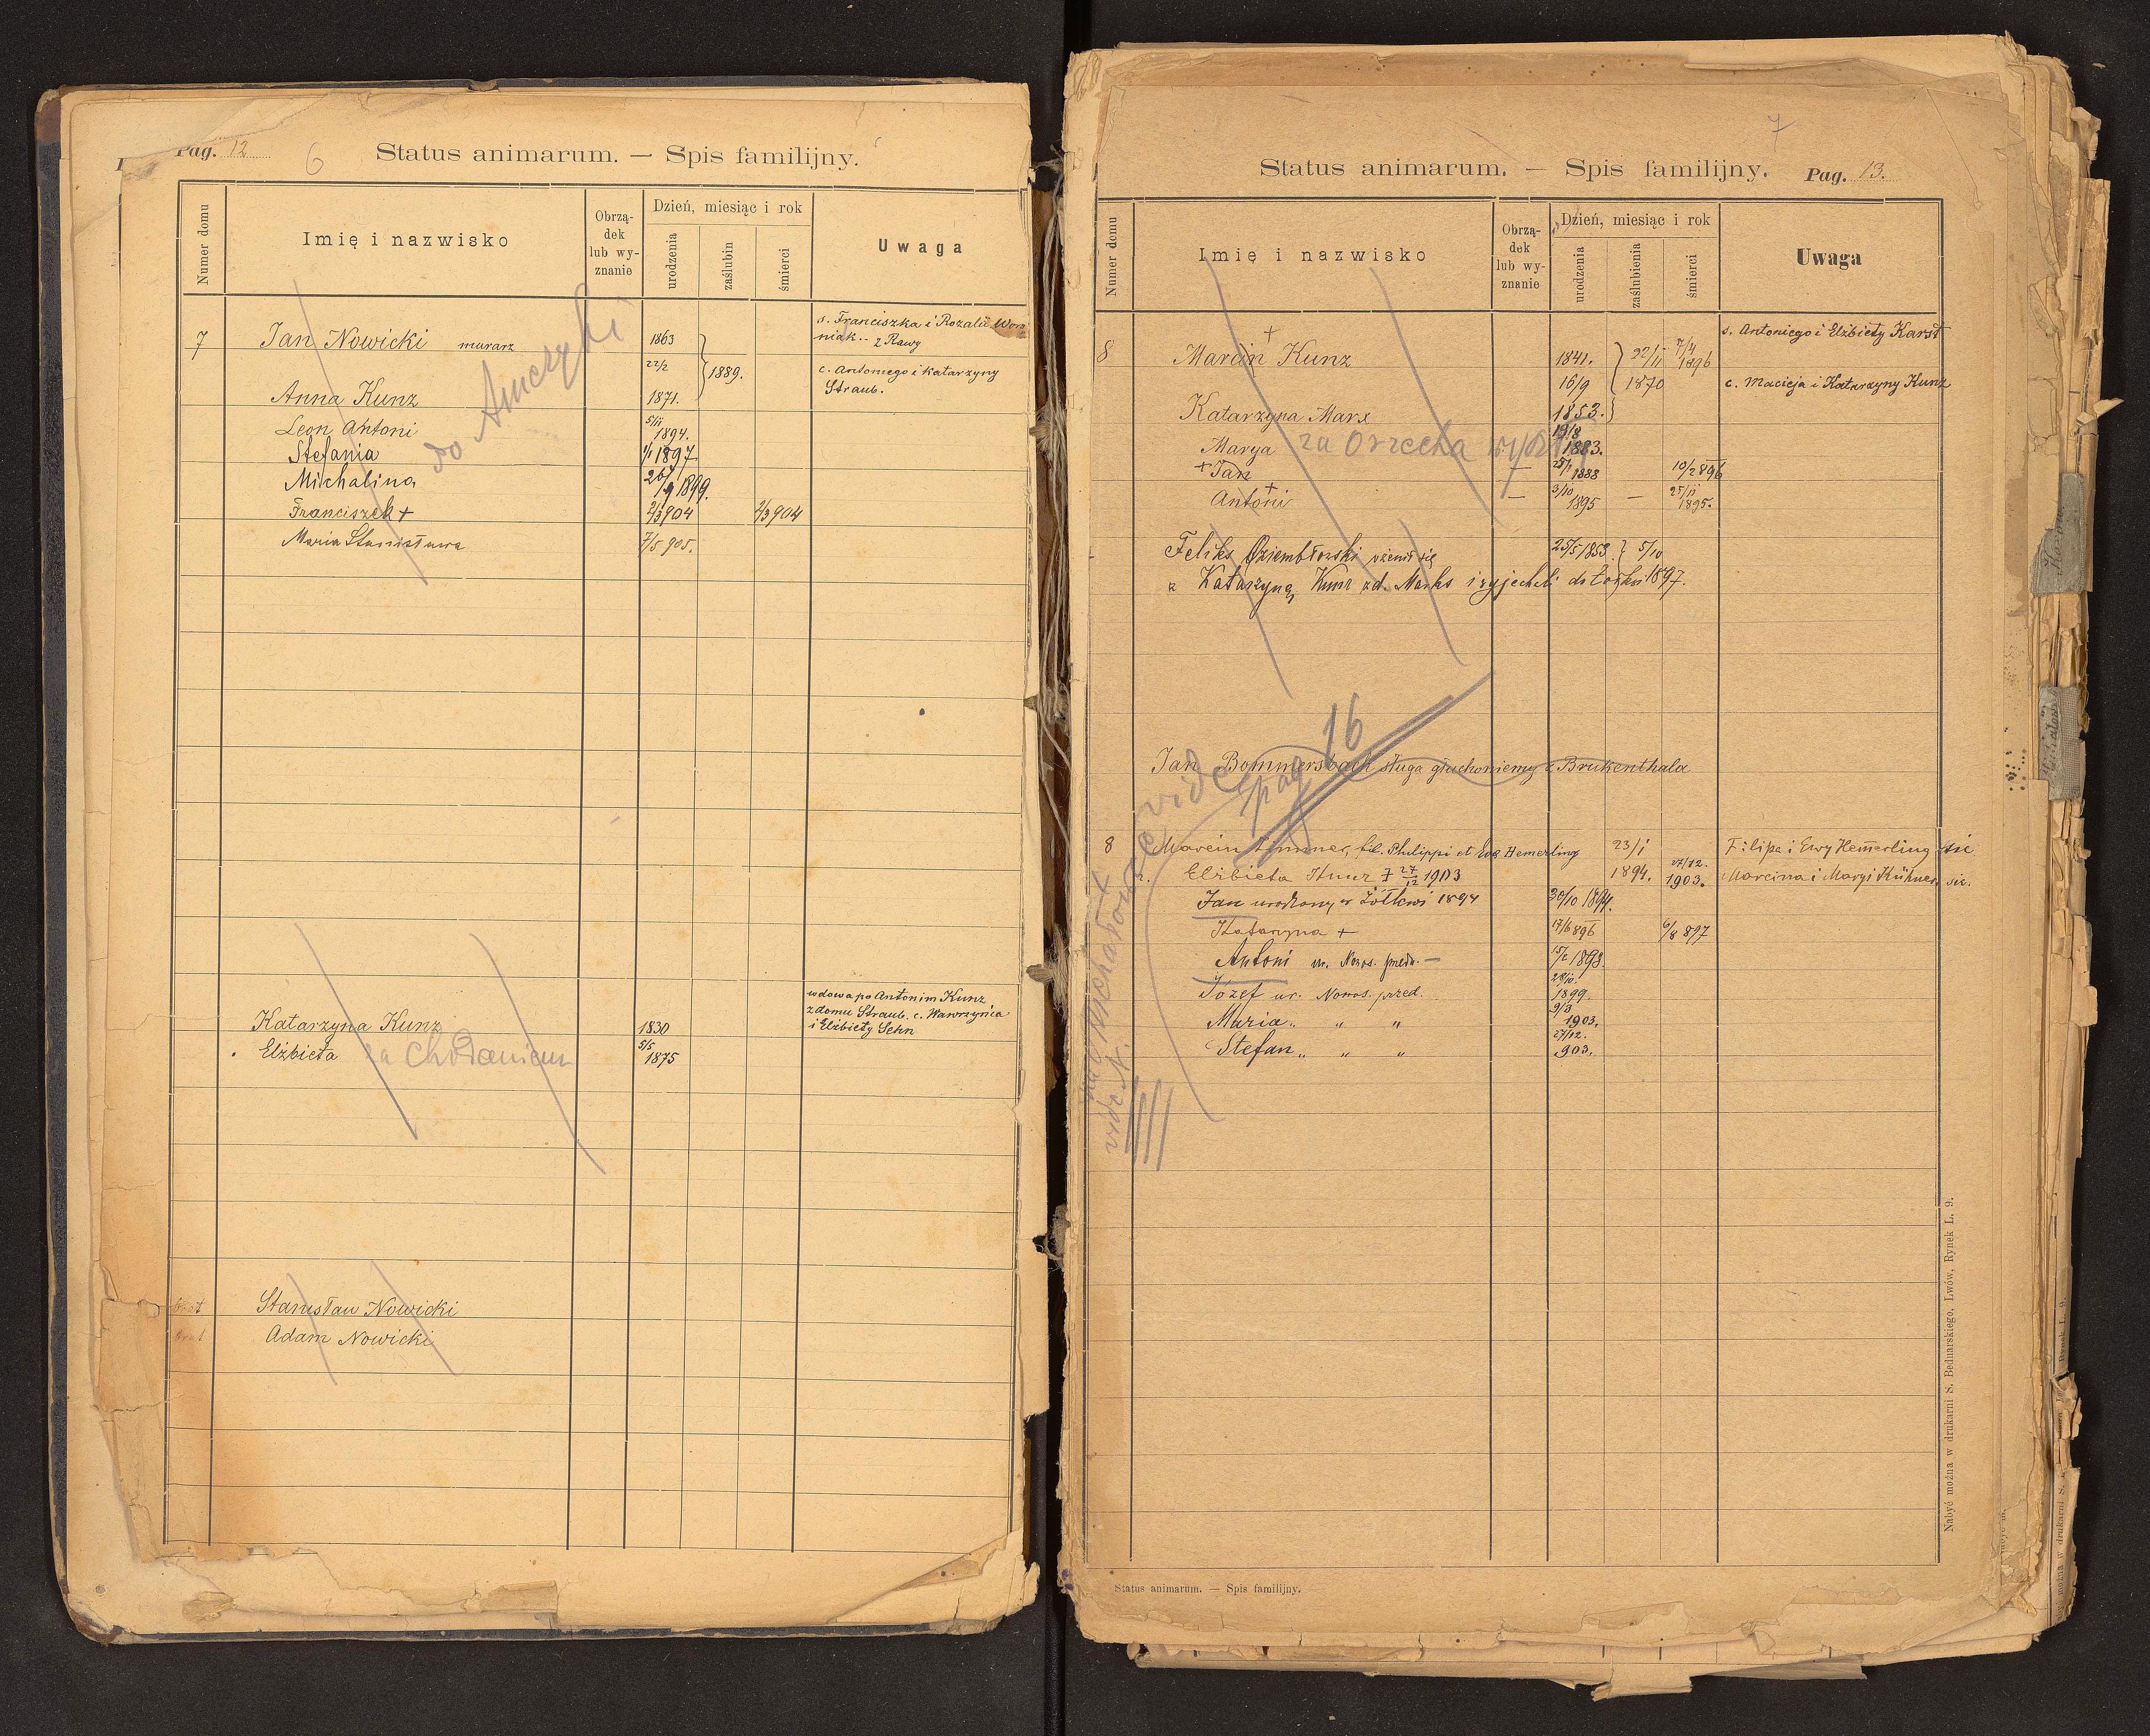 Pag. 12
6
Status animarum. — Spis familijny.
Numer domu
Imię i nazwisko
Obrzą-
dek
lub wy-
znanie
Dzień, miesiąc i rok
urodzenia
zaślubin
śmierci
Uwaga
s. Franciszka i Rozalii Woro
niak -- z Rawy
7 Jan Nowicki murarz 1863
22/2 1889.
c. Antoniego i Katarzyny
Straub.
Anna Kunz 1871.
do
Leon Antoni 5/11 1894.
Stefania 1/1 1897
Michalina 26/9 1899.
Franciszek + 2/3 904 2/3 904
Maria Stanisława 7/5 905.
wdowa po Antonim Kunz
z domu Straub. c. Wawrzyńca
i Elżbiety Sehn
Katarzyna Kunz 1830
Elżbieta za 5/5 1875
Stanisław Nowicki
brat Adam Nowicki
7
Status animarum. — Spis familijny. Pag. 13.
Numer domu
Imię i nazwisko
Obrzą-
dek
lub wy-
znanie
Dzień, miesiąc i rok
urodzenia
zaślubienia
śmierci
Uwaga
s. Antoniego i Elżbiety Karst
8 Marcin + Kunz 1841. 22/11 7/4 1896
16/9 1870 c. Macieja i Katarzyny Kunz
Katarzyna Marx 1853.
Marya za Orzecha 19/8 1883.
+ Jan — 25/1 1888 10/2 896
Antoni + — 3/10 1895 — 25/11 1895.
Feliks Dziembłowski ożenił się 25/5 1853. 5/10
z Katarzyną Kunz zd. Marks i wyjechali do 1897.
vide pag 16
Jan Bommersbach sługa głuchoniemy z Brukenthala
8 Marcin fil. Philippi et Evæ Hemerling 23/1 Filipa i Ewy Hemerling sic
Elżbieta † 27/12 1903 1894. 27/12. 1903. Marcina i Maryi Kühner. sic.
Jan urodzony w Żółkwi 1894 30/10 1894.
Katarzyna + 17/6 896 6/8 897
Antoni ur. Nowos. przedm. — 15/2 1898.
Józef ur. Nowos. przed. 28/10. 1899.
Maria „ „ „ 9/3 1903.
Stefan „ „ „ 27/12. 903.
vide N.
Nabyć można w drukarni S. Bednarskiego, Lwów, Rynek L. 9.
Status animarum. — Spis familijny.